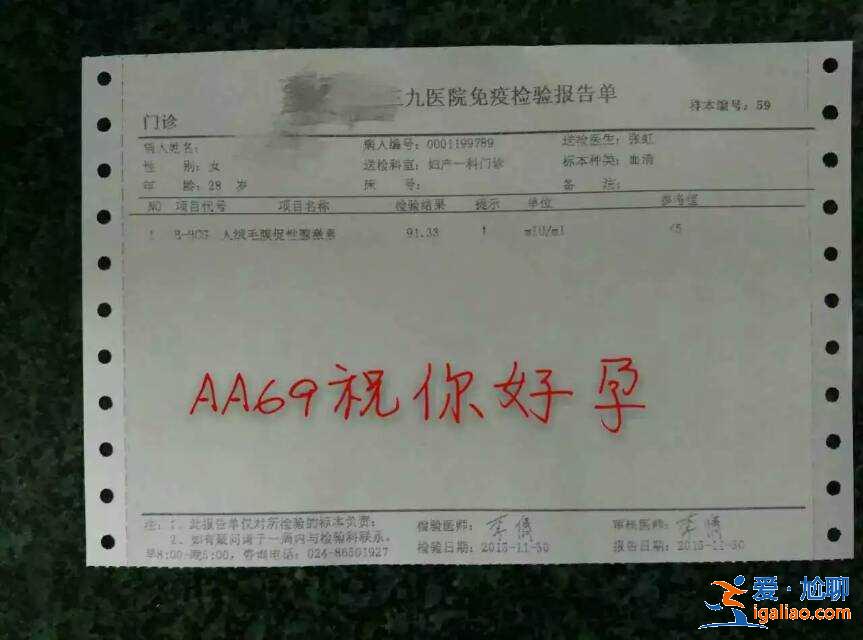 三九医院免疫检验报告单
样本编号: 59
门诊
病人姓名: 病人编号: 0001199789 送检医生: 张虹
性 别: 女 送检科室: 妇产一科门诊 标本种类: 血清
年 龄: 28 岁 床 号: 备 注:
NO 项目代号 项目名称 检验结果 提示 单位 参考值
1 B-HCG 人绒毛膜促性腺激素 91.33 ↑ mIU/ml <5
AA69祝你好孕
注: 1、此报告单仅对所检验的标本负责; 检验医师: 审核医师:
2、如有疑问请于一周内与检验科联系, 检验日期: 2015-11-30 报告日期: 2015-11-30
早8:00-晚5:00, 咨询电话: 024-86501927
爱·尬聊
igaliao.com